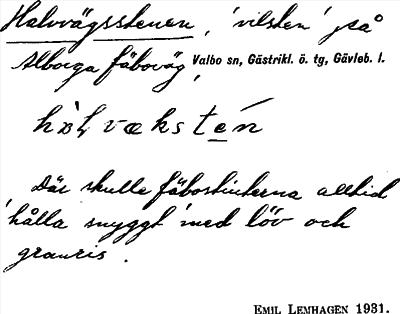 Halvvägsstenen, 'vilsten' på
Alborga fäboväg, Valbo sn, Gästrikl. ö. tg, Gävleb. l.
Där skulle fäbostinterna alltid
'hålla snyggt' med löv och
granris.
EMIL LEMHAGEN 1931.